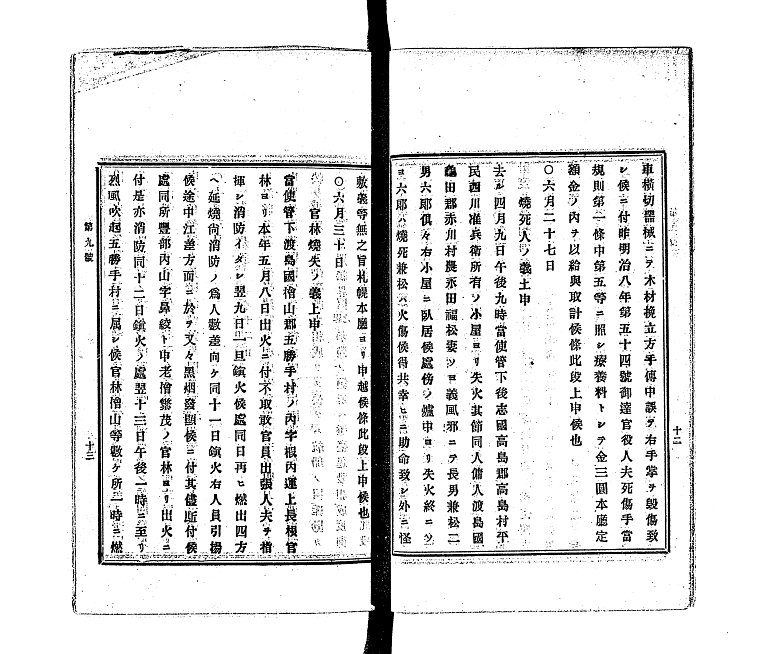 車橫切器械ニヲ木材挽立方手傳中誤ヲ右手掌ヲ毀傷致
シ候ニ付昨明治八年第五十四號御達官役人夫死傷手當
規則第一條中第五等ニ照シ療養料トシテ金三圓本廳定
額金ノ內ヲ以給與取計候條此段上申候也
〇六月二十七日
燒死人ノ義上申
去ル四月九日午後九時當使管下後志國高島郡高島村平
民西川准兵衛所有ノ小屋ヨリ失火其節同人傭人渡島國
龜田郡赤川村農永田福松妻ソヨ義風邪ニテ長男兼松二
男六郎俱々右小屋ニ臥居候處傍ノ爐中ヨリ失火終ニソ
ヨ六郎ハ燒死兼松ハ火傷候得共幸ヒニ助命致シ外ニ怪
十二
敷義等無之旨札幌本廳ヨリ申越候條此段上申候也
〇六月三十日
官林燒失ノ義上申
當使管下渡島國檜山郡五勝手村ノ內字椴內運上長根官
林ヨリ本年五月八日出火ニ付不取敢官員出張人夫ヲ指
揮シ消防イタシ翌九日一旦鎭火候處同日再ヒ燃出四方
ヘ延燒向消防ノ爲人數差向ケ同十一日鎭火右人員引揚
候途中江差方面ニ於テ又々黑烟發顯候ニ付其儘馳付候
處同所豐部內山字鼻紋ト申老僧繁茂ノ官林ヨリ出火ニ
付是亦消防同十二日鎭火ノ處翌十三日午後一時ニ至リ
烈風吹起五勝手村ニ属シ候官林僧山等數ケ所一時ニ燃
第九號
十三